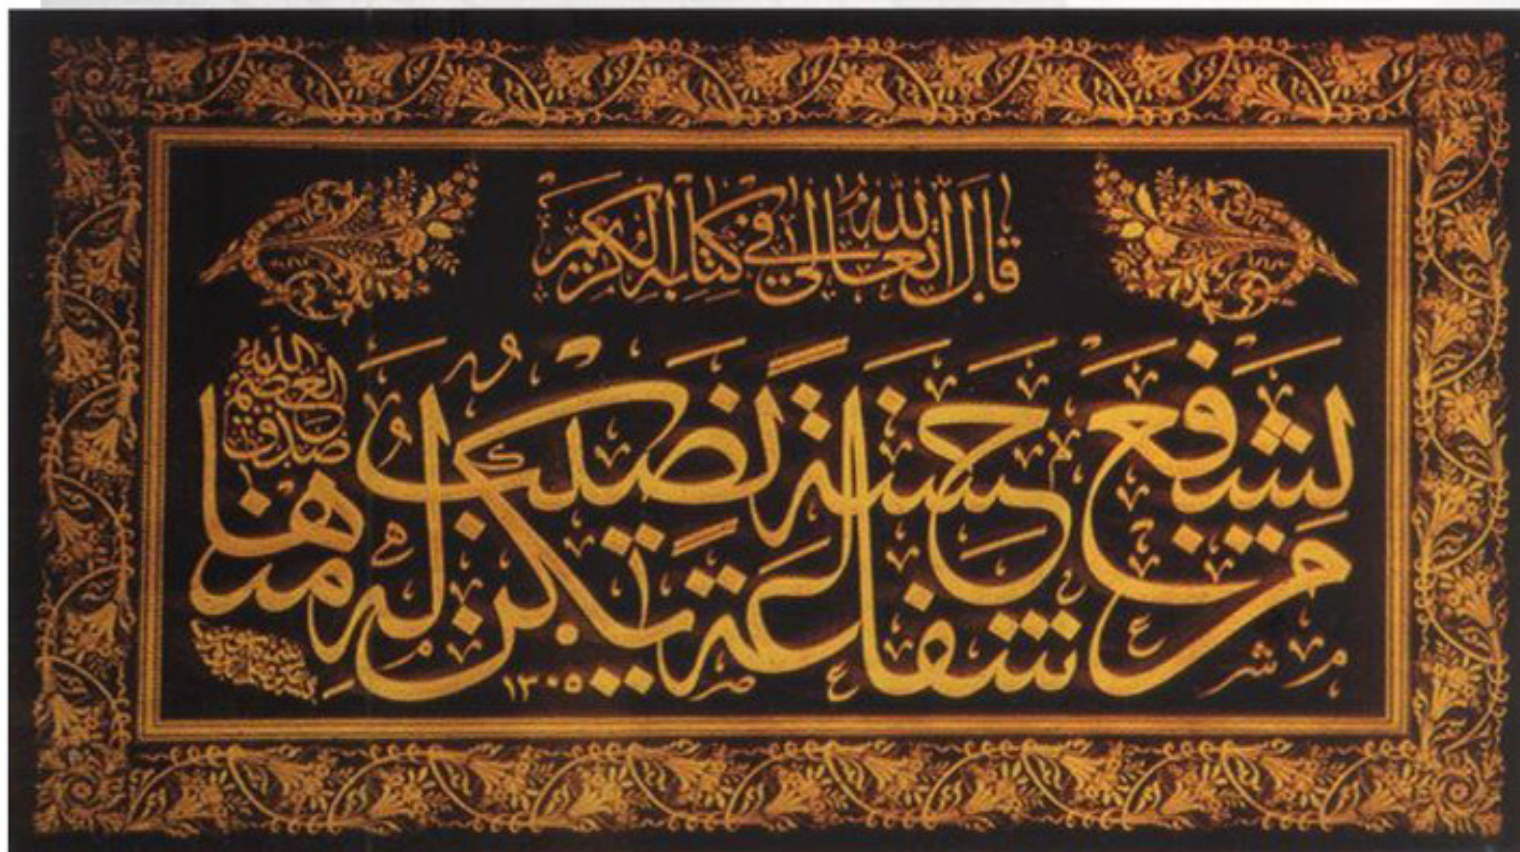 قال الله تعالى في كتابه الكريم
من يشفع شفاعة حسنة يكن له نصيب منها
صدق الله العظيم
١٣٠٥